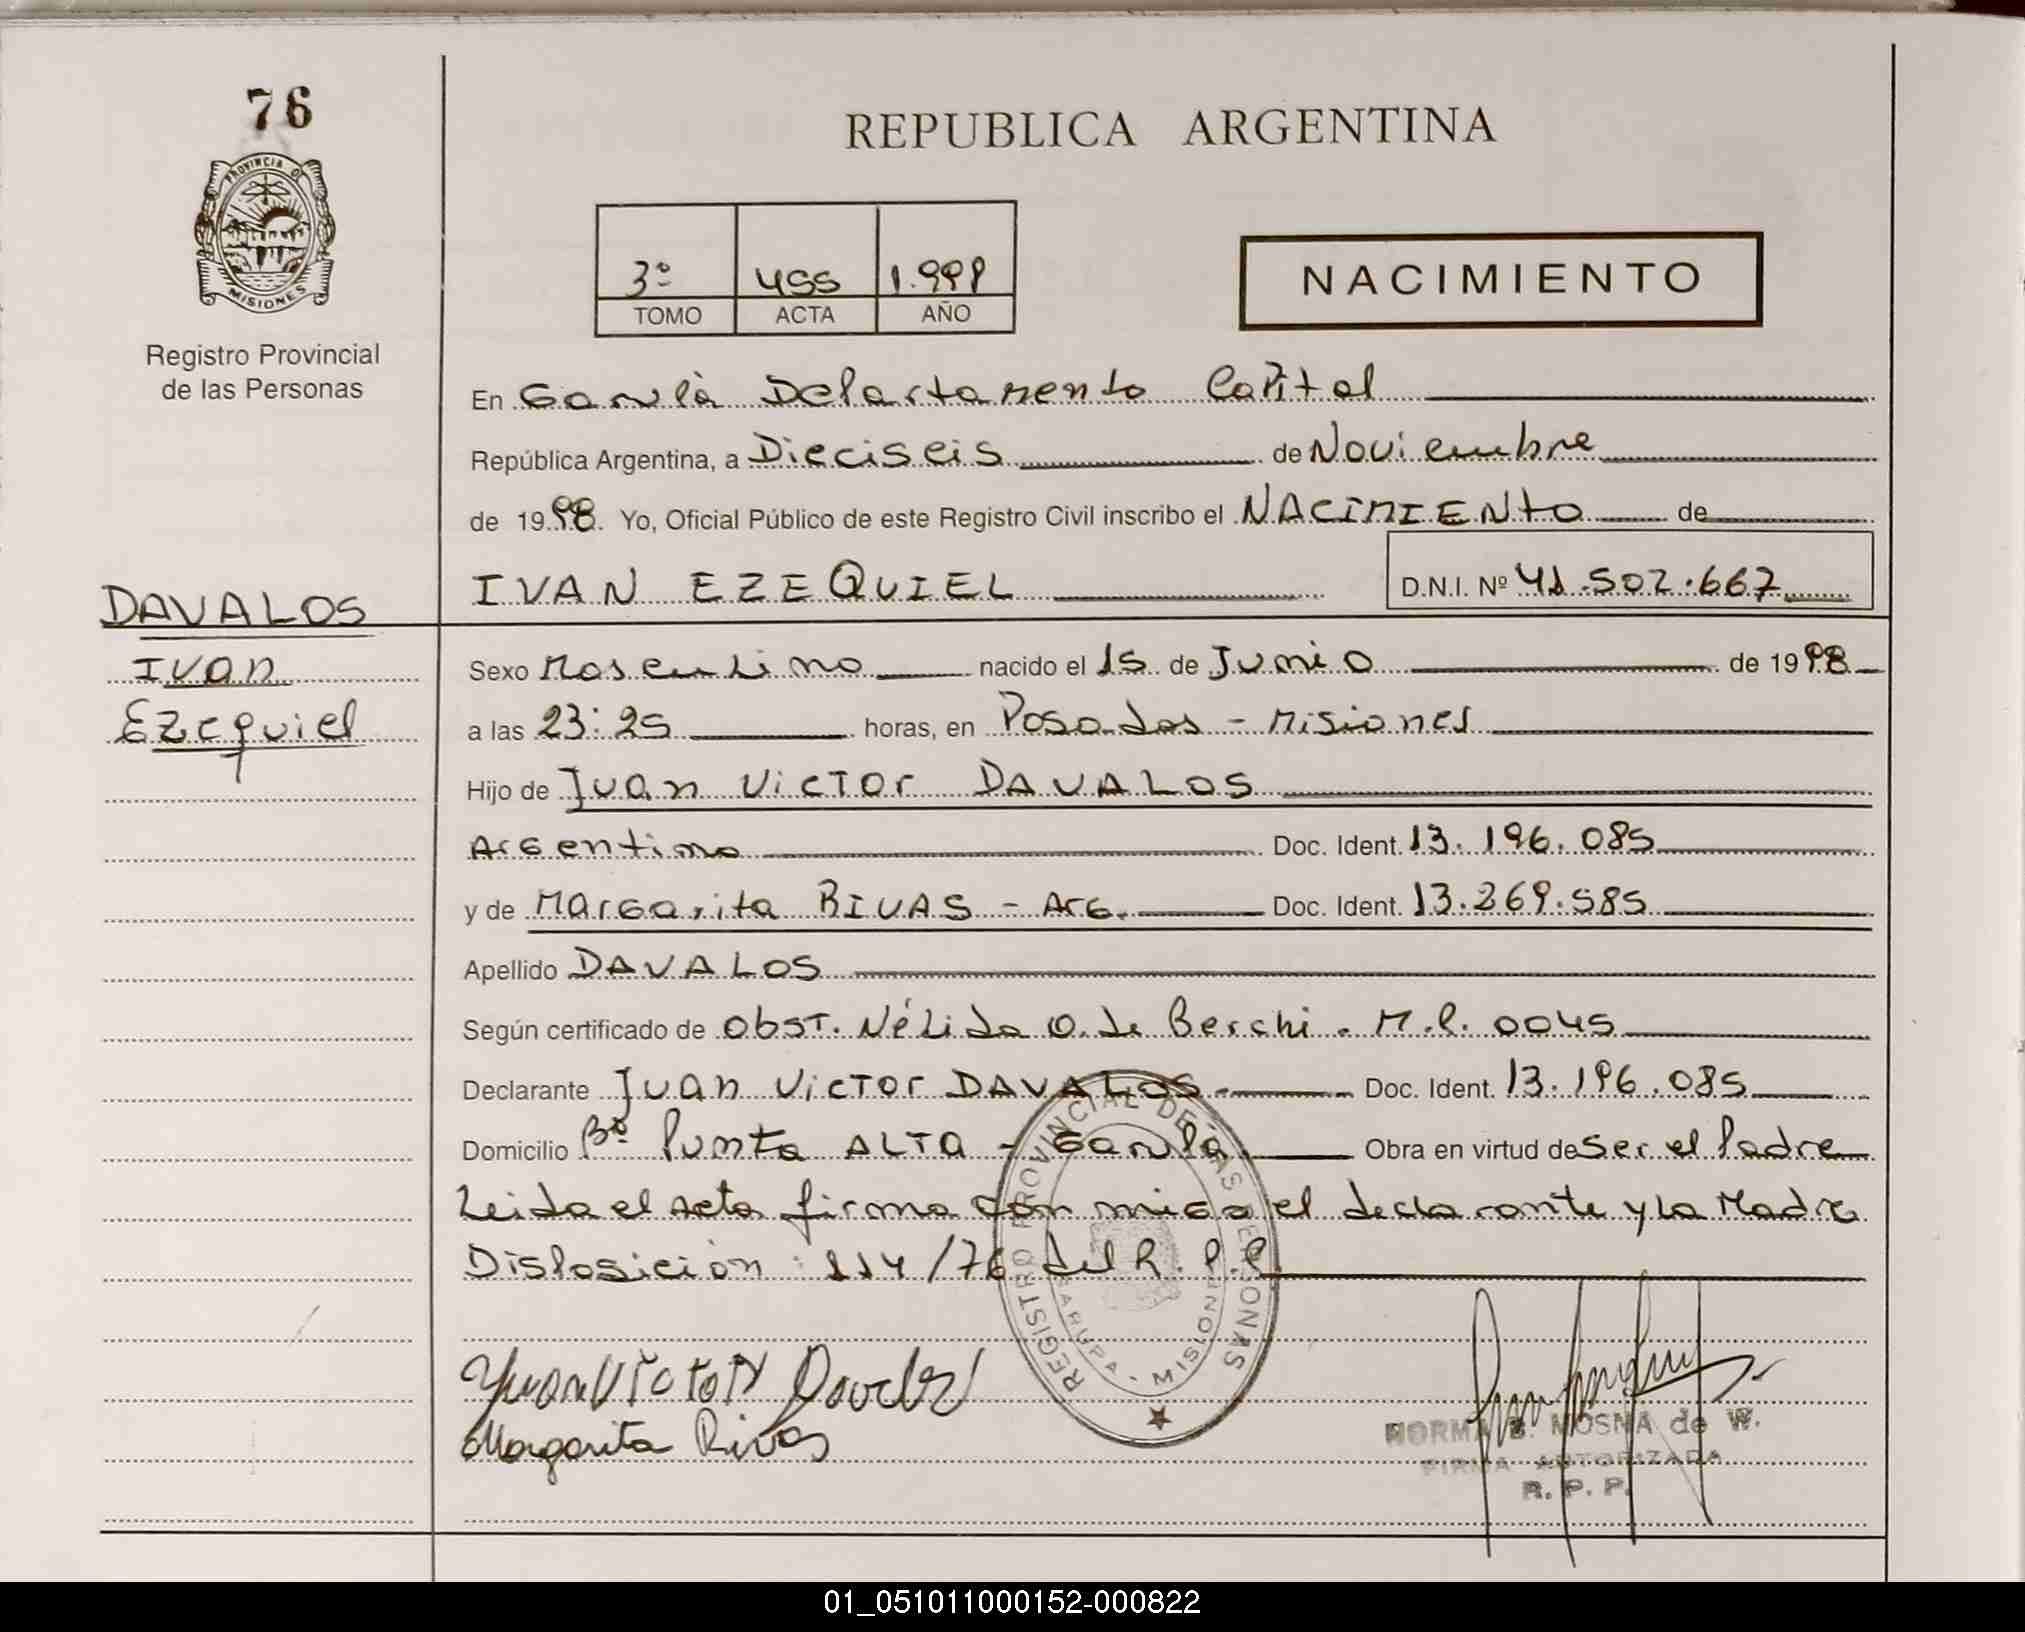 76
PROVINCIA DE
MISIONES
Registro Provincial
de las Personas
REPUBLICA ARGENTINA
3º 455 1.998
TOMO ACTA AÑO
NACIMIENTO
En Garupá Departamento Capital
República Argentina, a Dieciseis de Noviembre
de 1998. Yo, Oficial Público de este Registro Civil inscribo el NACIMIENto de
IVAN EZEQUIEL D.N.I. Nº 41.502.667
DAVALOS
Ivan
Ezequiel
Sexo Masculino nacido el 15 de Junio de 1998
a las 23:25 horas, en Posadas - Misiones
Hijo de Juan Victor DAVALOS
Argentino Doc. Ident. 13.196.085
y de Margarita RIVAS - Arg. Doc. Ident. 13.269.585
Apellido DAVALOS
Según certificado de Obst. Nélida O. de Berchi. M.P. 0045
Declarante Juan Victor DAVALOS.- Doc. Ident. 13.196.085
Domicilio Bº Punta ALTA - Garupá Obra en virtud de Ser el Padre
Leida el Acta firma con migo el declarante y la Madre
Disposición: 114/76 del R.P.P.
REGISTRO PROVINCIAL DE LAS PERSONAS
GARUPA - MISIONES
Juan Victor Davalos
Margarita Rivas
NORMA B. MOSNA de W.
FIRMA AUTORIZADA
R. P. P.
01_051011000152-000822